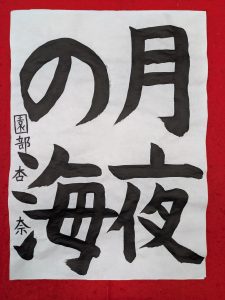 月夜
の海
園部杏奈